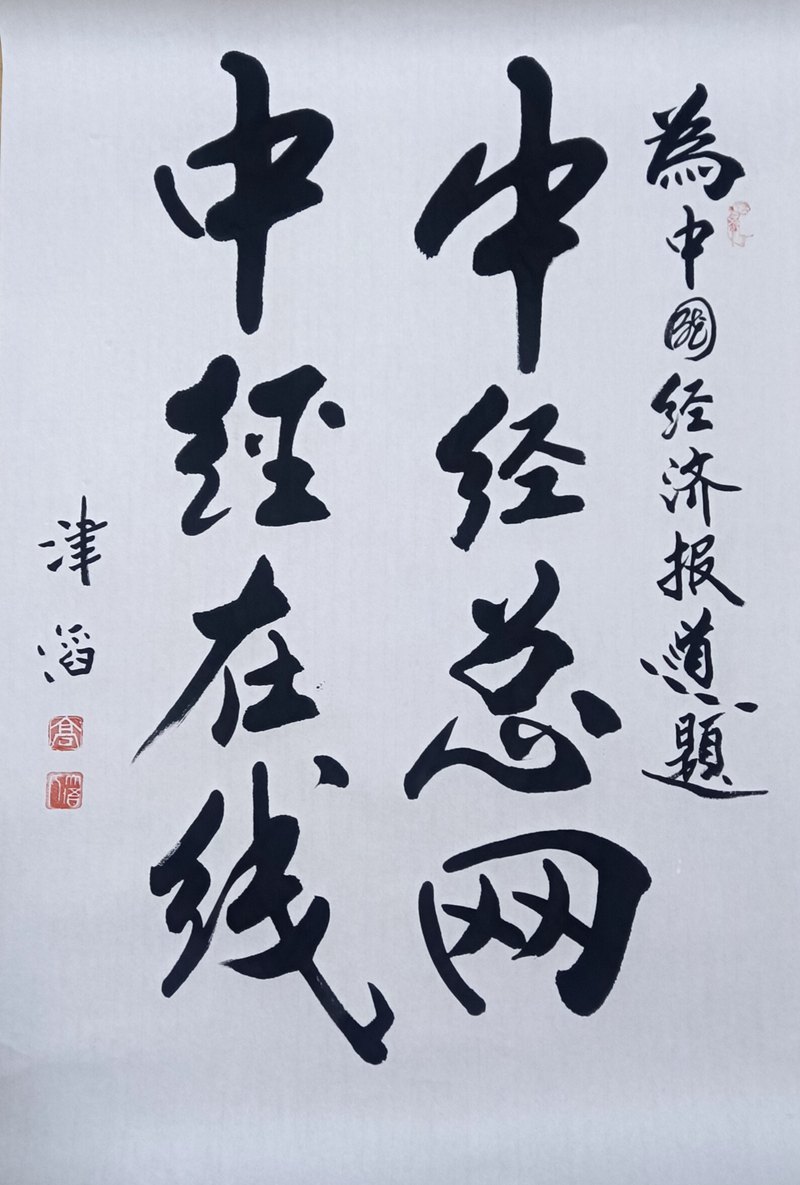 為中国经济报道題
中经总网
中經在线
津滔